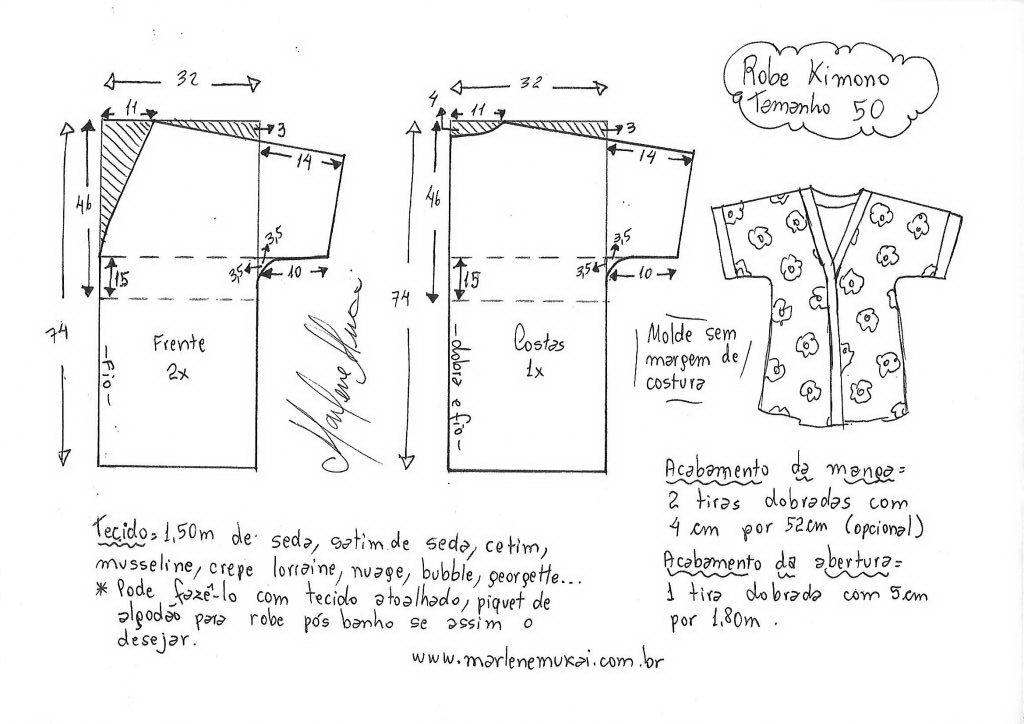 Robe Kimono
Tamanho 50
32
11
3
14
46
3,5
3,5
10
15
74
Frente
2x
-Fio-
Marlene Mukai
32
4
11
3
14
46
3,5
3,5
10
15
74
Costas
1x
-dobra e fio-
Molde sem
margem de
costura
Acabamento da manga=
2 tiras dobradas com
4 cm por 52cm (opcional)
Acabamento da abertura=
1 tira dobrada com 5cm
por 1,80m.
Tecido= 1,50m de seda, satim de seda, cetim,
musseline, crepe lorraine, nuage, bubble, georgette...
* Pode fazê-lo com tecido atoalhado, piquet de
algodão para robe pós banho se assim o
desejar.
www.marlenemukai.com.br